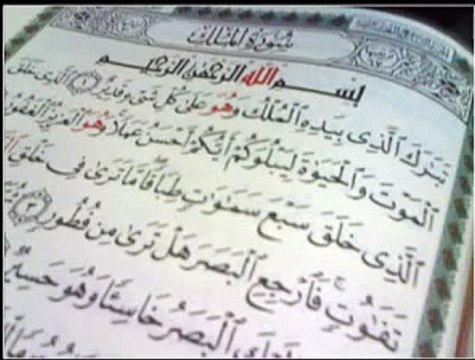 سُورَةُ المُلْكِ
بِسْمِ اللَّهِ الرَّحْمَٰنِ الرَّحِيمِ
تَبَٰرَكَ الَّذِى بِيَدِهِ الْمُلْكُ وَهُوَ عَلَىٰ كُلِّ شَىْءٍ قَدِيرٌ ۝١ الَّذِى خَلَقَ
الْمَوْتَ وَالْحَيَوٰةَ لِيَبْلُوَكُمْ أَيُّكُمْ أَحْسَنُ عَمَلًا وَهُوَ الْعَزِيزُ الْغَفُورُ
الَّذِى خَلَقَ سَبْعَ سَمَٰوَٰتٍ طِبَاقًا مَّا تَرَىٰ فِى خَلْقِ
تَفَٰوُتٍ فَارْجِعِ الْبَصَرَ هَلْ تَرَىٰ مِن فُطُورٍ ۝٣
الْبَصَرُ خَاسِئًا وَهُوَ حَسِيرٌ